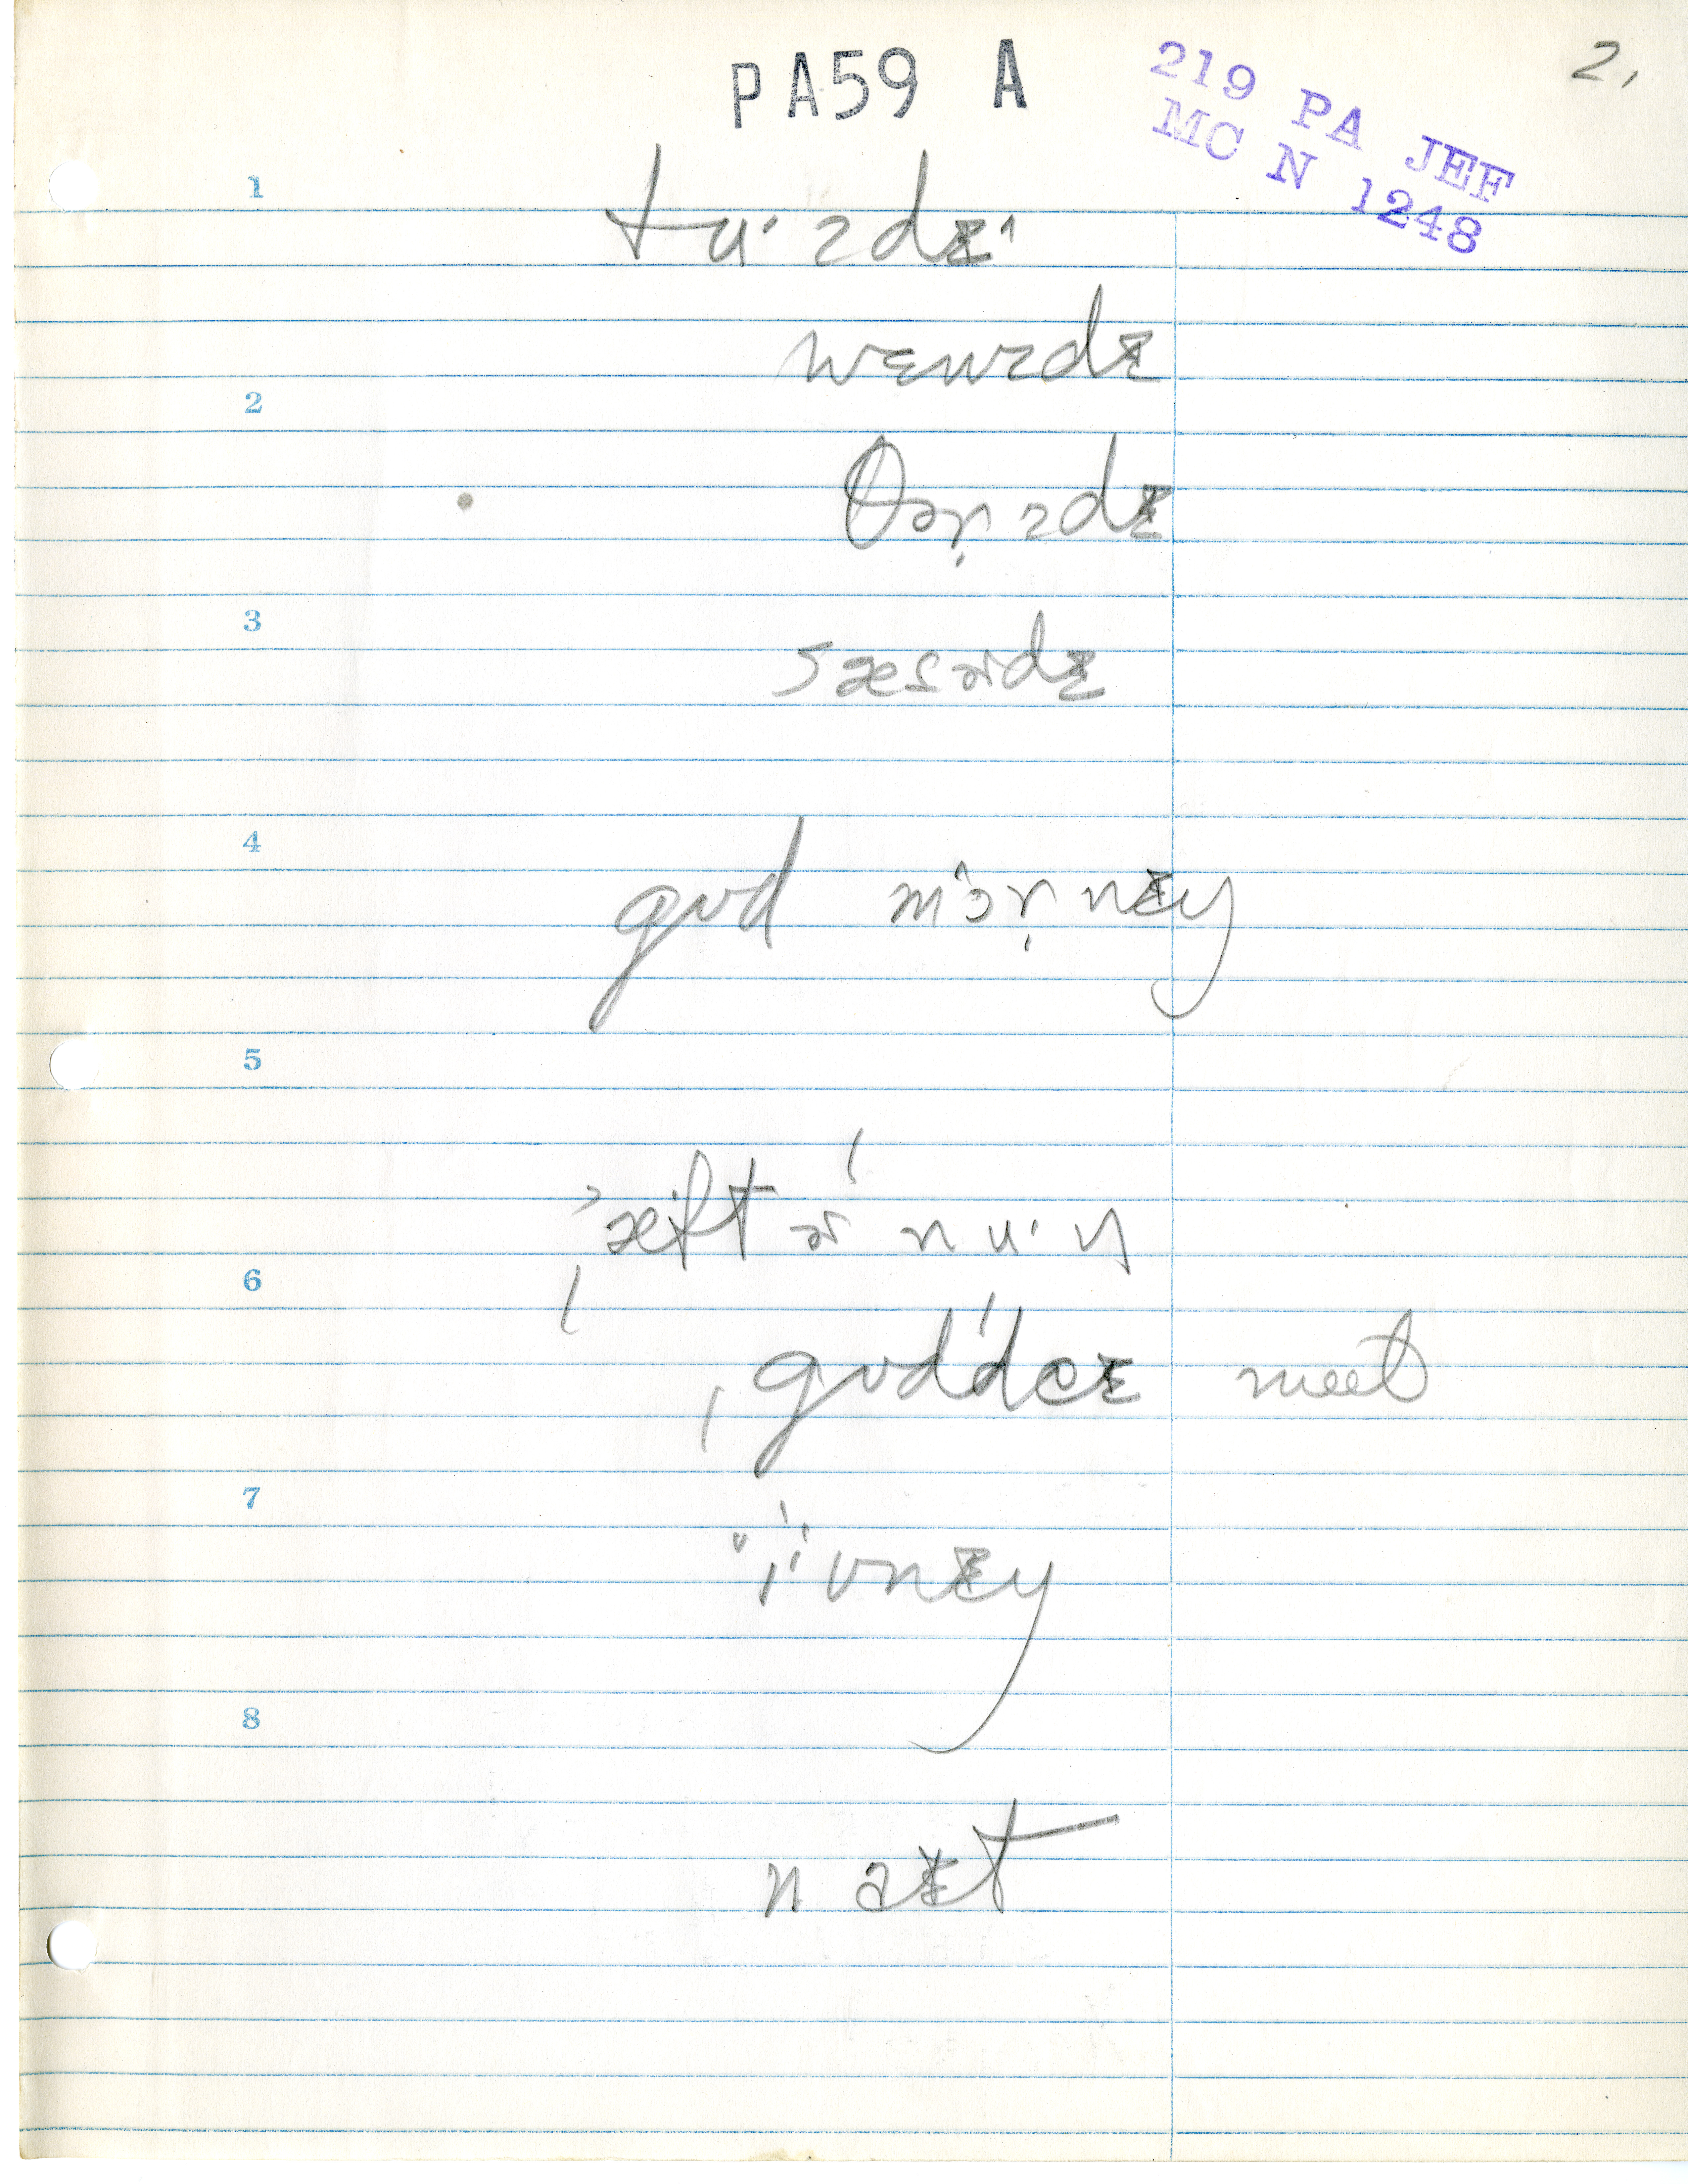 PA59 A
219 PA JEF
MC N 1248
2,
1
tu·zdɪ^
wɛnzdɪ
2
θɚzdɪ
3
sæsɚdɪ
4
gʊd mɔ·r̩nɪŋ
5
ˈæftɚnu·n
6
ˌgʊdˈdeɪ meet
7
i·vnɪŋ
8
naɪt